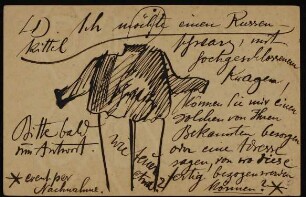 Ich möchte einen Russen-
kittel
schwarz, mit
hochgeschlossenem
Kragen,
Können Sie mir einen
solchen von Ihren
Bekannten besorgen
oder eine Adresse
sagen, von wo diese
fertig bezogen werden
können? *
Bitte bald
um Antwort
wie teuer
etwa?
* event. per
Nachnahme.